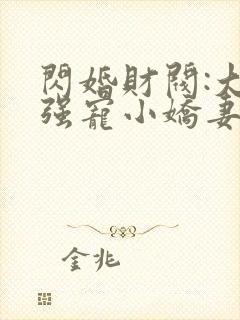 閃婚財閥:大
强寵小嬌妻
金兆